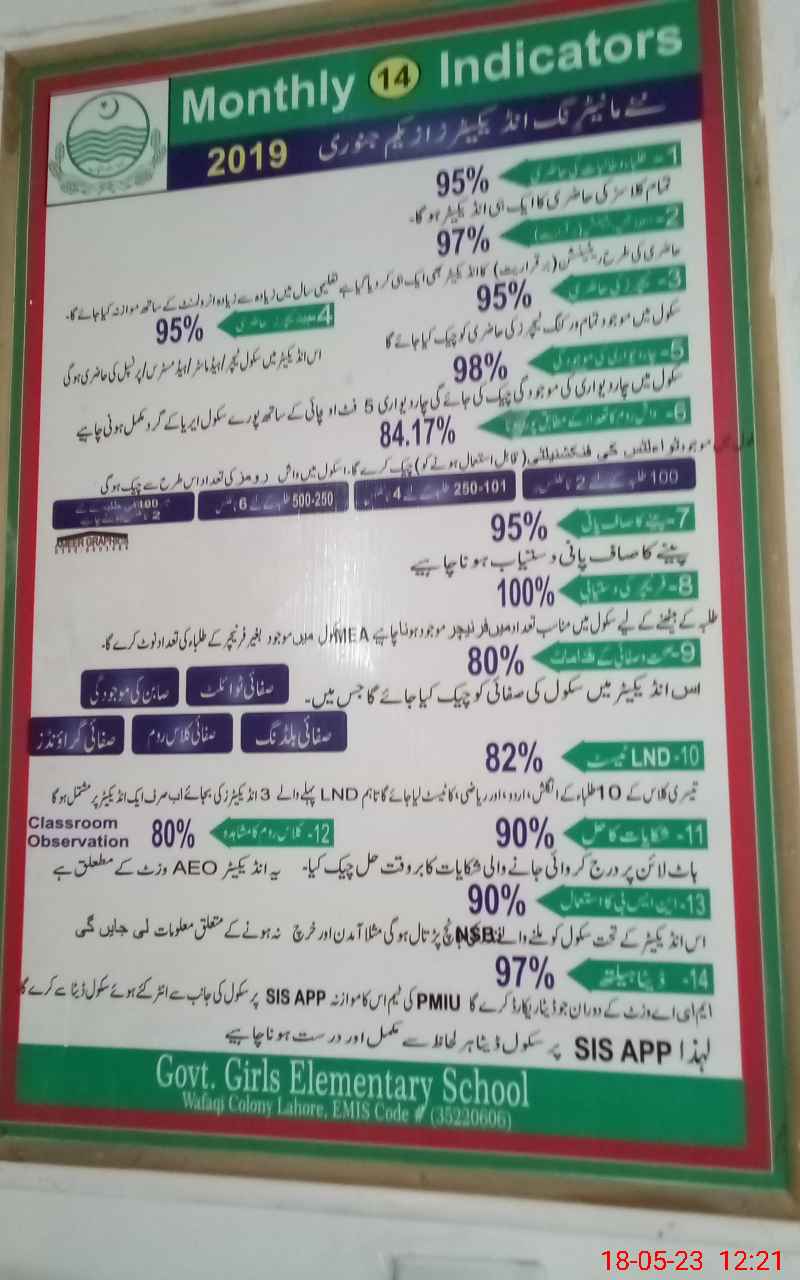 Monthly 14 Indicators
نئے مانیٹرنگ انڈیکیٹرز از یکم جنوری 2019
1- طلباء و طالبات کی حاضری 95%
تمام کلاسز کی حاضری کا ایک ہی انڈیکیٹر ہوگا۔
2- 97%
حاضری کی طرح ریٹینشن (برقراریت) کا انڈیکیٹر بھی ایک ہی کر دیا گیا ہے تعلیمی سال میں زیادہ سے زیادہ انرولمنٹ کے ساتھ موازنہ کیا جائے گا۔
3- ٹیچرز کی حاضری 95%
سکول میں موجود تمام ورکنگ ٹیچرز کی حاضری کو چیک کیا جائے گا
4 حاضری 95%
اس انڈیکیٹر میں سکول ٹیچر/ہیڈ ماسٹر/ہیڈ مسٹرس/پرنسپل کی حاضری ہوگی
5- چار دیواری کی موجودگی 98%
سکول میں چار دیواری کی موجودگی چیک کی جائے گی چار دیواری 5 فٹ اونچائی کے ساتھ پورے سکول ایریا کے گرد مکمل ہونی چاہیے
6- واش روم کا تعداد کے مطابق 84.17%
موجود ٹوائلٹس کی فنکشنیلٹی (قابل استعمال ہونے کو) چیک کرے گا۔ اسکول میں واش رومز کی تعداد اس طرح سے چیک ہوگی
100 طلبہ کے لیے 2 ٹائلٹس
101-250 طلبہ کے لیے 4 ٹائلٹس
250-500 طلبہ کے لیے 6 ٹائلٹس
UZEER GRAPHICS
7- پینے کا صاف پانی 95%
پینے کا صاف پانی دستیاب ہونا چاہیے
8- فرنیچر کی دستیابی 100%
طلبہ کے بیٹھنے کے لیے سکول میں مناسب تعداد میں فرنیچر موجود ہونا چاہیے MEA سکول میں موجود بغیر فرنیچر کے طلباء کی تعداد نوٹ کرے گا۔
9- صحت و صفائی کے 80%
اس انڈیکیٹر میں سکول کی صفائی کو چیک کیا جائے گا جس میں۔
صفائی ٹوائلٹ
صابن کی موجودگی
صفائی بلڈنگ
صفائی کلاس روم
صفائی گراؤنڈز
10- LND ٹیسٹ 82%
تیسری کلاس کے 10 طلباء کے انگلش، اردو، اور ریاضی، کا ٹیسٹ لیا جائے گا تاہم LND پہلے والے 3 انڈیکیٹرز کی بجائے اب صرف ایک انڈیکیٹر پر مشتمل ہوگا
11- شکایات کا حل 90%
ہاٹ لائن پر درج کروائی جانے والی شکایات کا بروقت حل چیک کیا۔
12- کلاس روم کا مشاہدہ 80%
Classroom
Observation
یہ انڈیکیٹر AEO وزٹ کے مطعلق ہے
13- این ایس بی کا استعمال 90%
اس انڈیکیٹر کے تحت سکول کو ملنے والے NSB پڑتال ہوگی مثلا آمدن اور خرچ نہ ہونے کے متعلق معلومات لی جایں گی
14- ڈیٹا ہیلتھ 97%
ایم ای اے وزٹ کے دوران جو ڈیٹا ریکارڈ کرے گا PMIU کی ٹیم اس کا موازنہ SIS APP پر سکول کی جانب سے انٹر کئے ہوئے سکول ڈیٹا سے کرے گا
لہذا SIS APP پر سکول ڈیٹا ہر لحاظ سے مکمل اور درست ہونا چاہیے
Govt. Girls Elementary School
Wafaqi Colony Lahore, EMIS Code # (35220606)
18-05-23 12:21